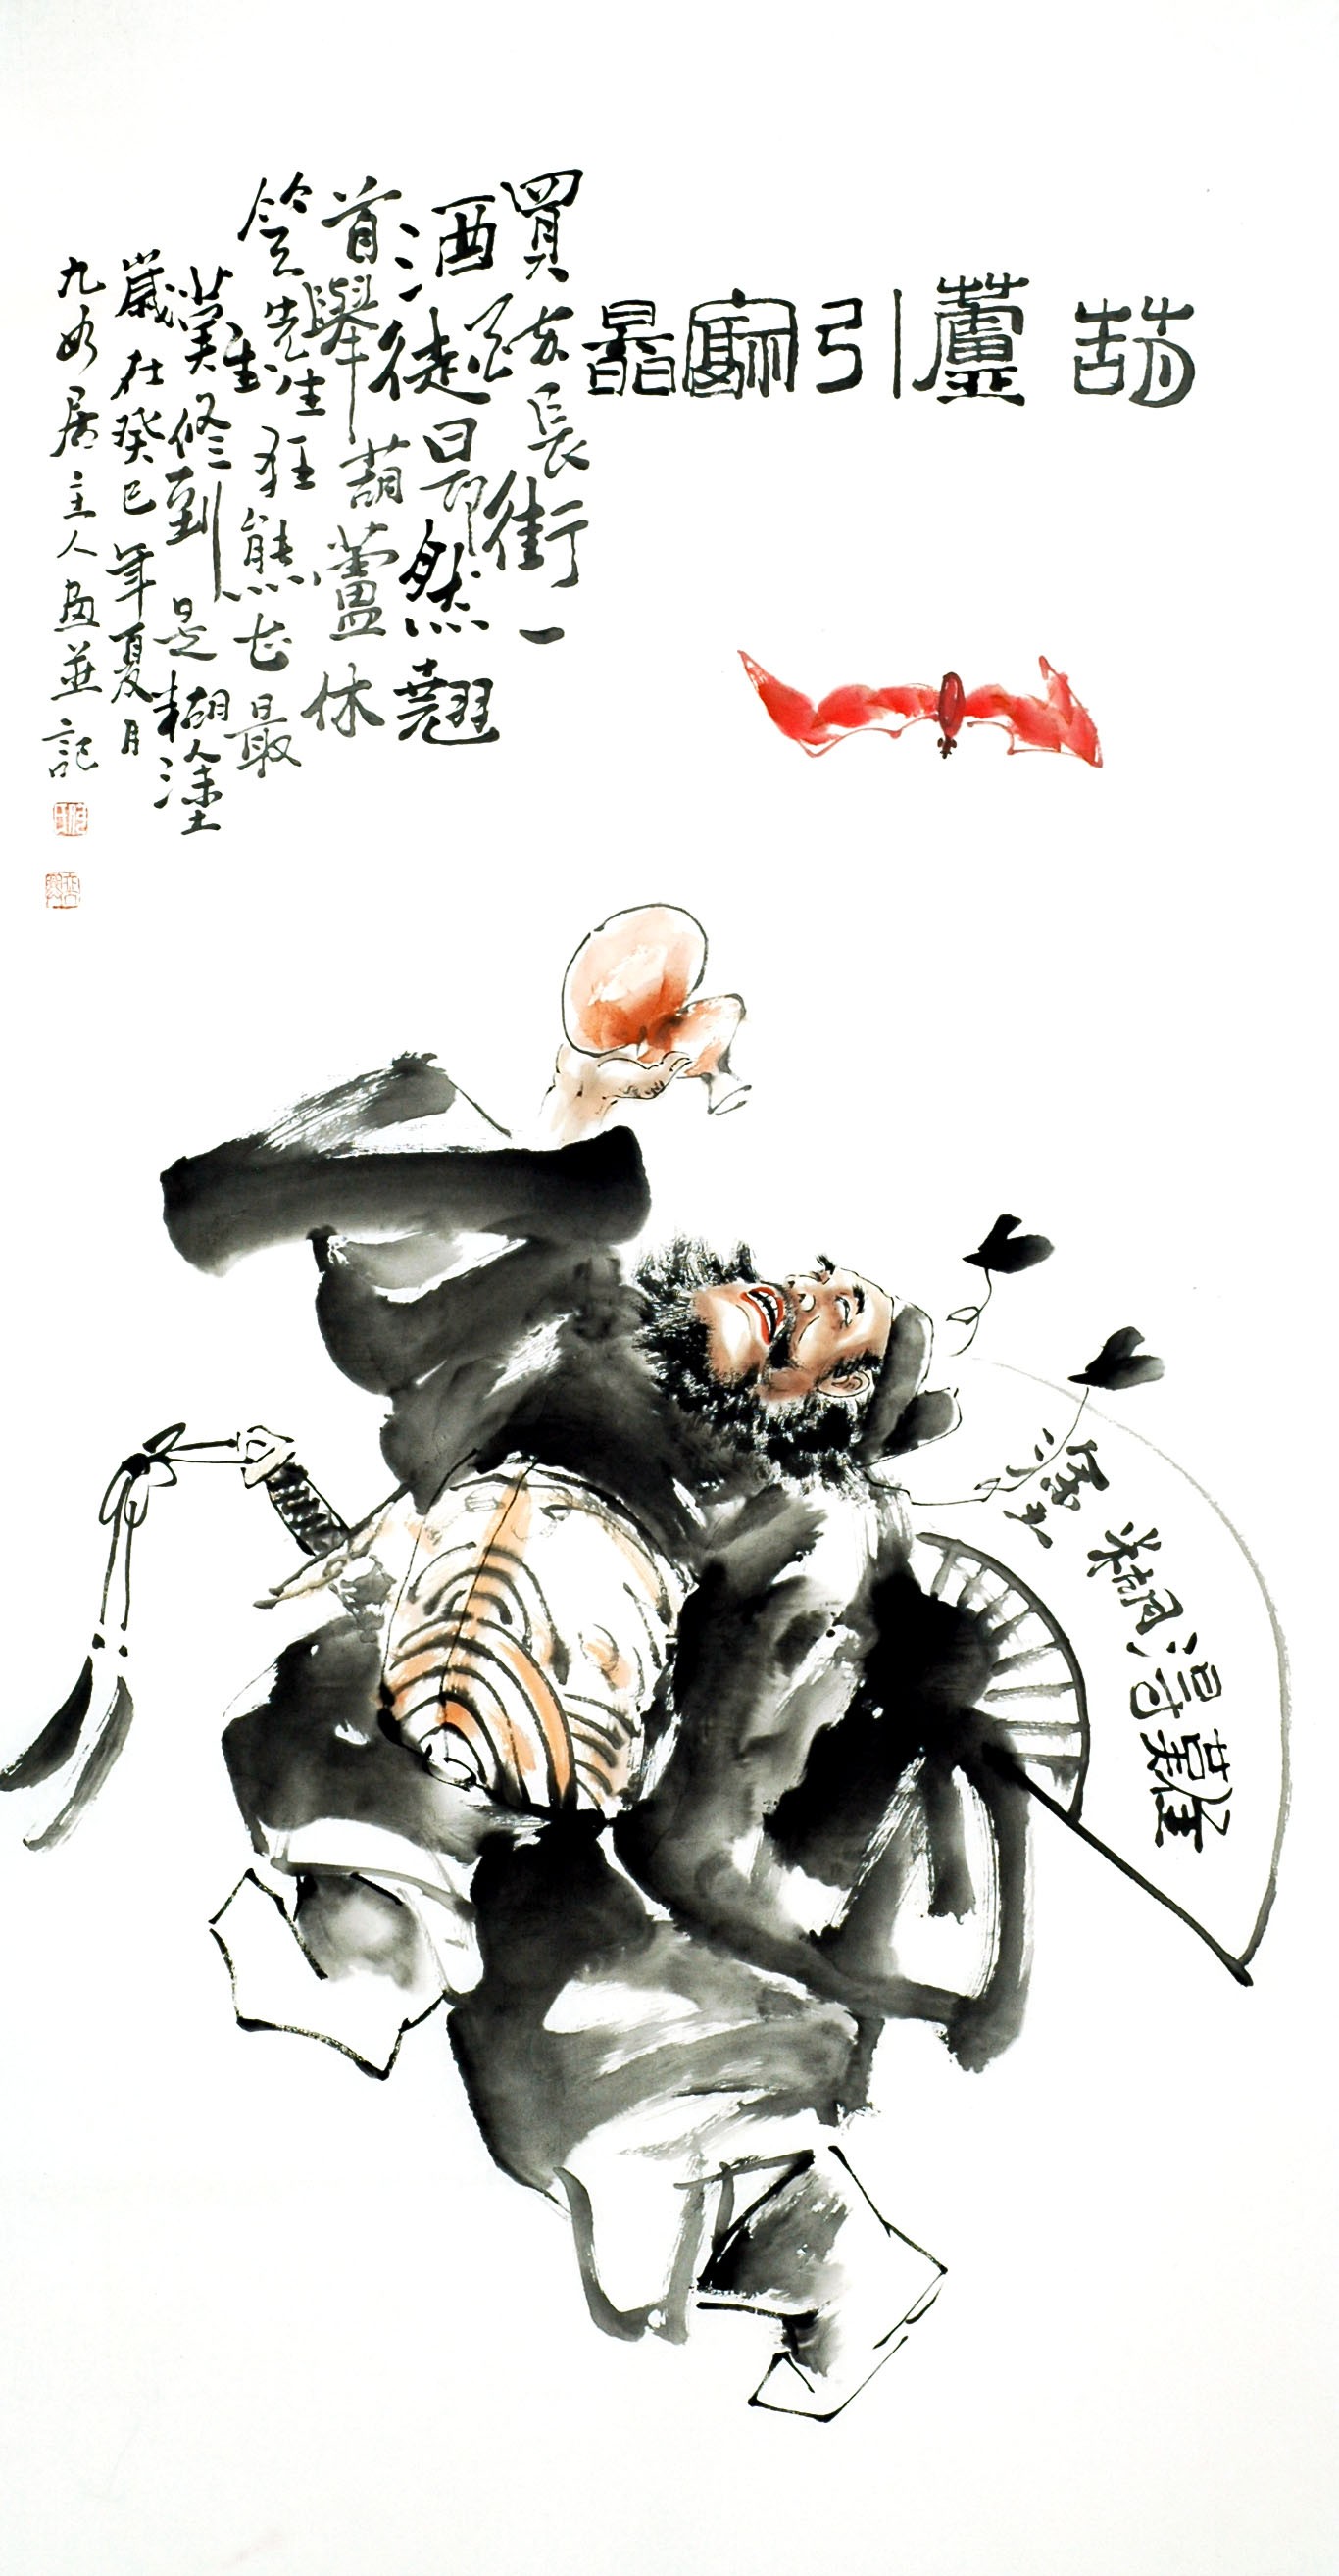 葫蘆引
買醉長街一
酒徒昂然翹
首舉葫蘆休
笑先生狂態最
難修到是糊塗
歲在癸巳年夏月
九如居主人畫並記
難得糊塗